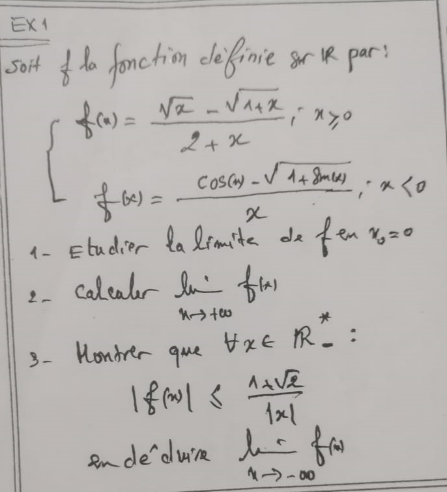 EX 1
Soit f la fonction définie sur IR par :
f(x) = (√x - √(1+x)) / (2 + x) ; x ≥ 0
f(x) = (cos(x) - √(1 + sin(x))) / x ; x < 0
1- Etudier la limite de f en x₀ = 0
2- calculer lim f(x)
x → +∞
3- Montrer que ∀x ∈ IR₋* :
|f(x)| ≤ (1+√2) / |x|
en déduire lim f(x)
x → -∞